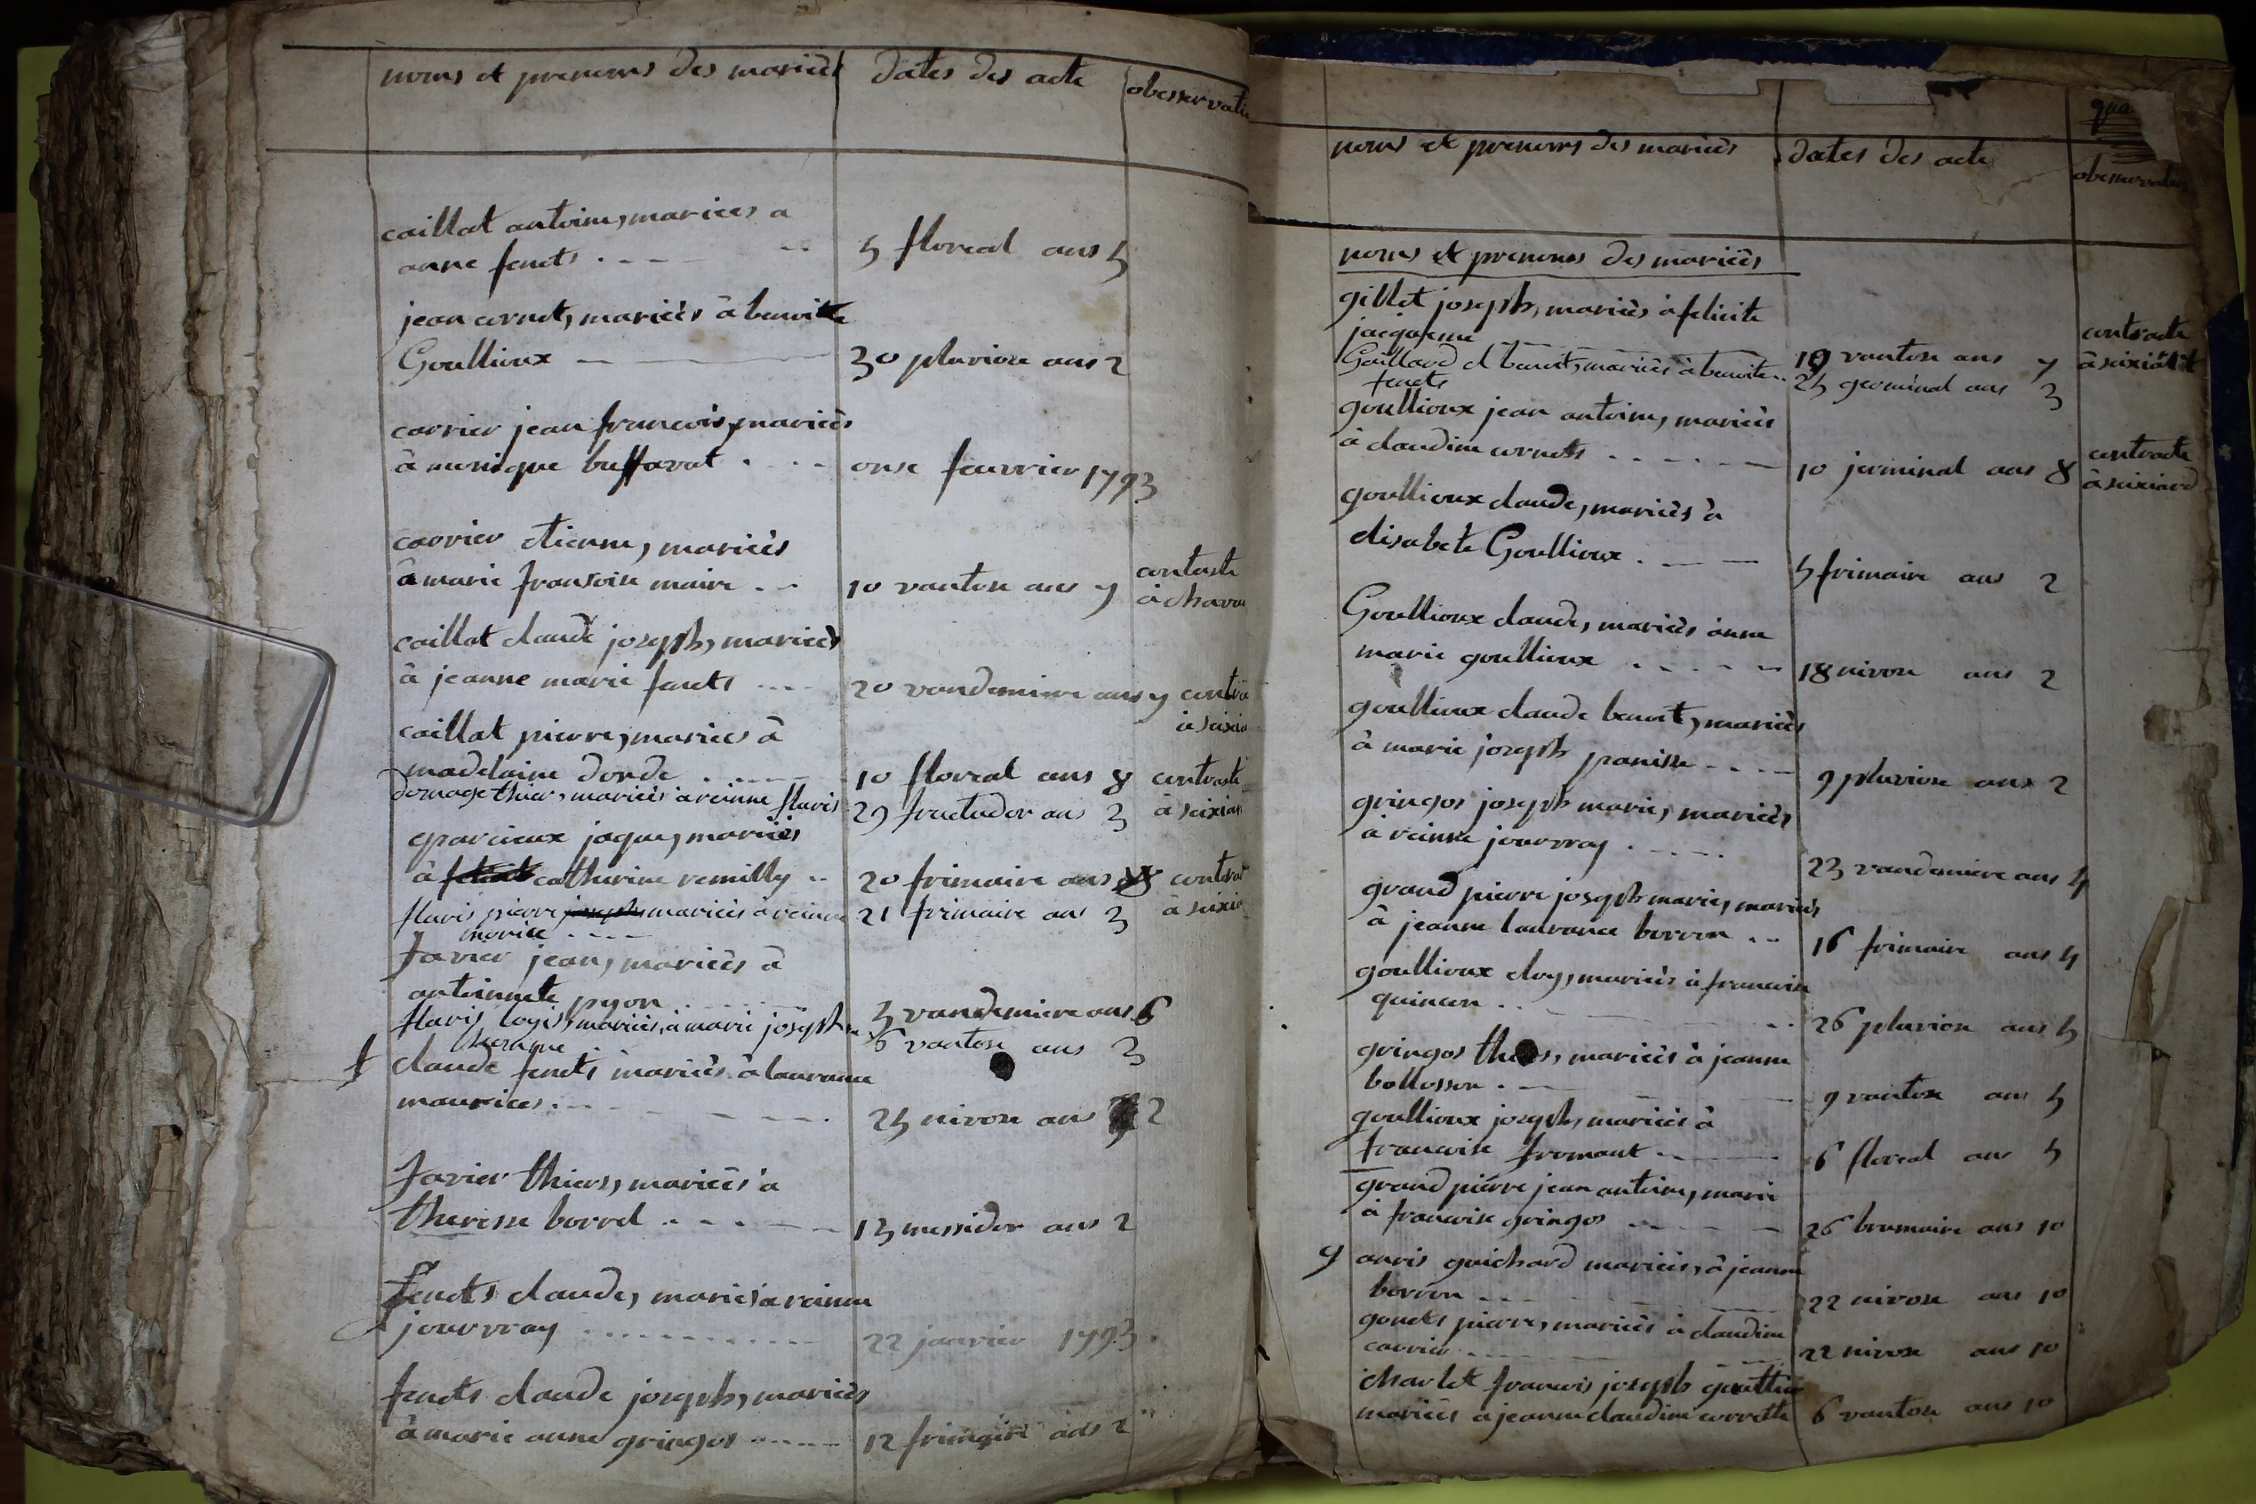 noms et prenoms des mariés dates des acte obesservati
caillat antoine, mariees a
anne fenets 5 floreal ans 5
jean cornet, mariées â benoitte
Goullioux 30 pluviose ans 2
carrier jean francois, mariées
â monique buffavat onse feuvrier 1793
carrier etienne, mariées
â marie fransoise maire 10 vantose ans 7 contracte
â chava
caillat claude joseph, mariées
â jeanne marie fenets 20 vandemiere ans 7 contra
à seixia
caillat pierre, mariées â
madelaine dorde 10 floreal ans 8 contracte
dornage thier, mariées a reinne flavis 29 fructudor ans 3 à seixia
eparcieux jaque, mariées
â catherine remilly 20 frimaire ans 8 contrat
flavis pierre joseph mariées à reinne 21 frimaire ans 3 à seixia
morice
favier jean, mariées â
antoinnete pyon 3 vandemiere ans 6
flavis logis, mariées, à marie joseph 6 vantose ans 3
claude fenets mariées â laurance
maurices 25 nivose ans 2
favier thiers, mariées a
theresse borrel 13 messidor ans 2
fenets claude, mariés a reinne
jouvray 22 janvier 1793
fenets claude joseph, mariées
â marie anne gringos 12 frimaire ans 2
noms et prenoms des mariées dates des acte obesservation
noms et prenoms des mariées
gillet joseph, mariées à felicite
jacqueme 19 vantose ans 7 contracte
à seixia
Gaillard d benoit, mariées â benoite 25 germinal ans 3
fenets
goullioux jean antoine, mariées
à claudine cornets 10 jerminal ans 8 contracte
à seixiard
goullioux claude, mariées à
elisabete Goullioux 5 frimaire ans 2
Goullioux claude, mariées ânne
marie goullioux 18 nivose ans 2
goullioux claude benoit, mariées
à marie joseph panisse 9 pluviose ans 2
gringos joseph marie, mariées
à reinne jouvray 23 vandemiere ans 4
grand pierre joseph marie, mariées
à jeanne laurance borron 16 frimaire ans 4
goullioux eloy, mariées à francoise
quincon 26 pluviose ans 5
gringos thiers, mariées à jeanne
bollosson 9 vantose ans 5
goullioux joseph, mariées à
francoise fromant 6 floreal ans 5
grand piérre jean antoine, marié
à francoise gringos 26 brumaire ans 10
9 anris guichard mariées, â jeanne
borron 22 nivose ans 10
gonets pierre, mariées à claudine
carrier 22 nivose ans 10
charlet francois joseph goullioux
mariées a jeanne claudine corrette 6 vantose ans 10